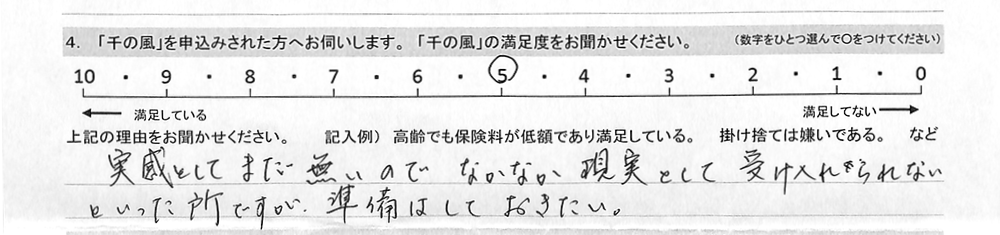 4. 「千の風」を申込みされた方へお伺いします。「千の風」の満足度をお聞かせください。 (数字をひとつ選んで〇をつけてください)
10 ・ 9 ・ 8 ・ 7 ・ 6 ・ 5 ・ 4 ・ 3 ・ 2 ・ 1 ・ 0
満足している 満足してない
上記の理由をお聞かせください。 記入例) 高齢でも保険料が低額であり満足している。 掛け捨ては嫌いである。 など
実感としてまだ無いのでなかなか現実として受け入れきられない
といった所ですが、準備はしておきたい。